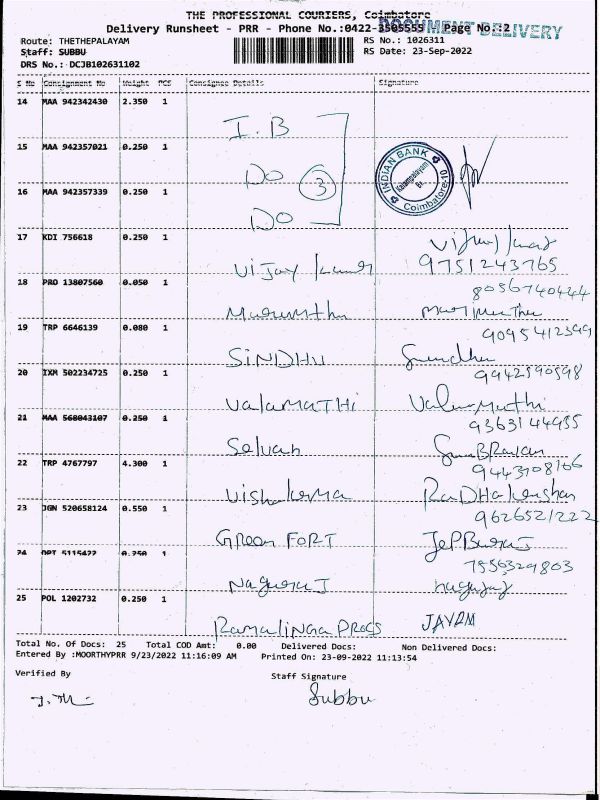 THE PROFESSIONAL COURIERS, Coimbatore
Delivery Runsheet - PRR - Phone No.:0422-3505555 Page No.:2
DOCUMENT DELIVERY
Route: THETHEPALAYAM
RS No.: 1026311
Staff: SUBBU
RS Date: 23-Sep-2022
DRS No.: DCJB102631102
S No Consignment No Weight PCS Consignee Details Signature
14 MAA 942342430 2.350 1
I.B
15 MAA 942357021 0.250 1
INDIAN BANK
Coimbatore-10
Do 3
16 MAA 942357339 0.250 1
Do
17 KDI 756618 0.250 1
Vijay Kumar 9751243765
18 PRO 13807560 0.050 1
8056740444
19 TRP 6646139 0.080 1
9095412399
SINDHU Sindhu
20 IXM 502234725 0.250 1
9942590598
ValaMaTHi ValarMathi
21 MAA 568043107 0.250 1
9363144955
Selvan
22 TRP 4767797 4.300 1
9443708166
Vishakarma RaDHakrishan
23 JGN 520658124 0.550 1
9626521222
Green FORT
24 OPT 5115422 0.250 1
7550329803
Nagaraj nagaraj
25 POL 1202732 0.250 1
Ramalinga PRocs JAYAM
Total No. Of Docs: 25 Total COD Amt: 0.00 Delivered Docs: Non Delivered Docs:
Entered By :MOORTHYPRR 9/23/2022 11:16:09 AM Printed On: 23-09-2022 11:13:54
Verified By Staff Signature
Subbu